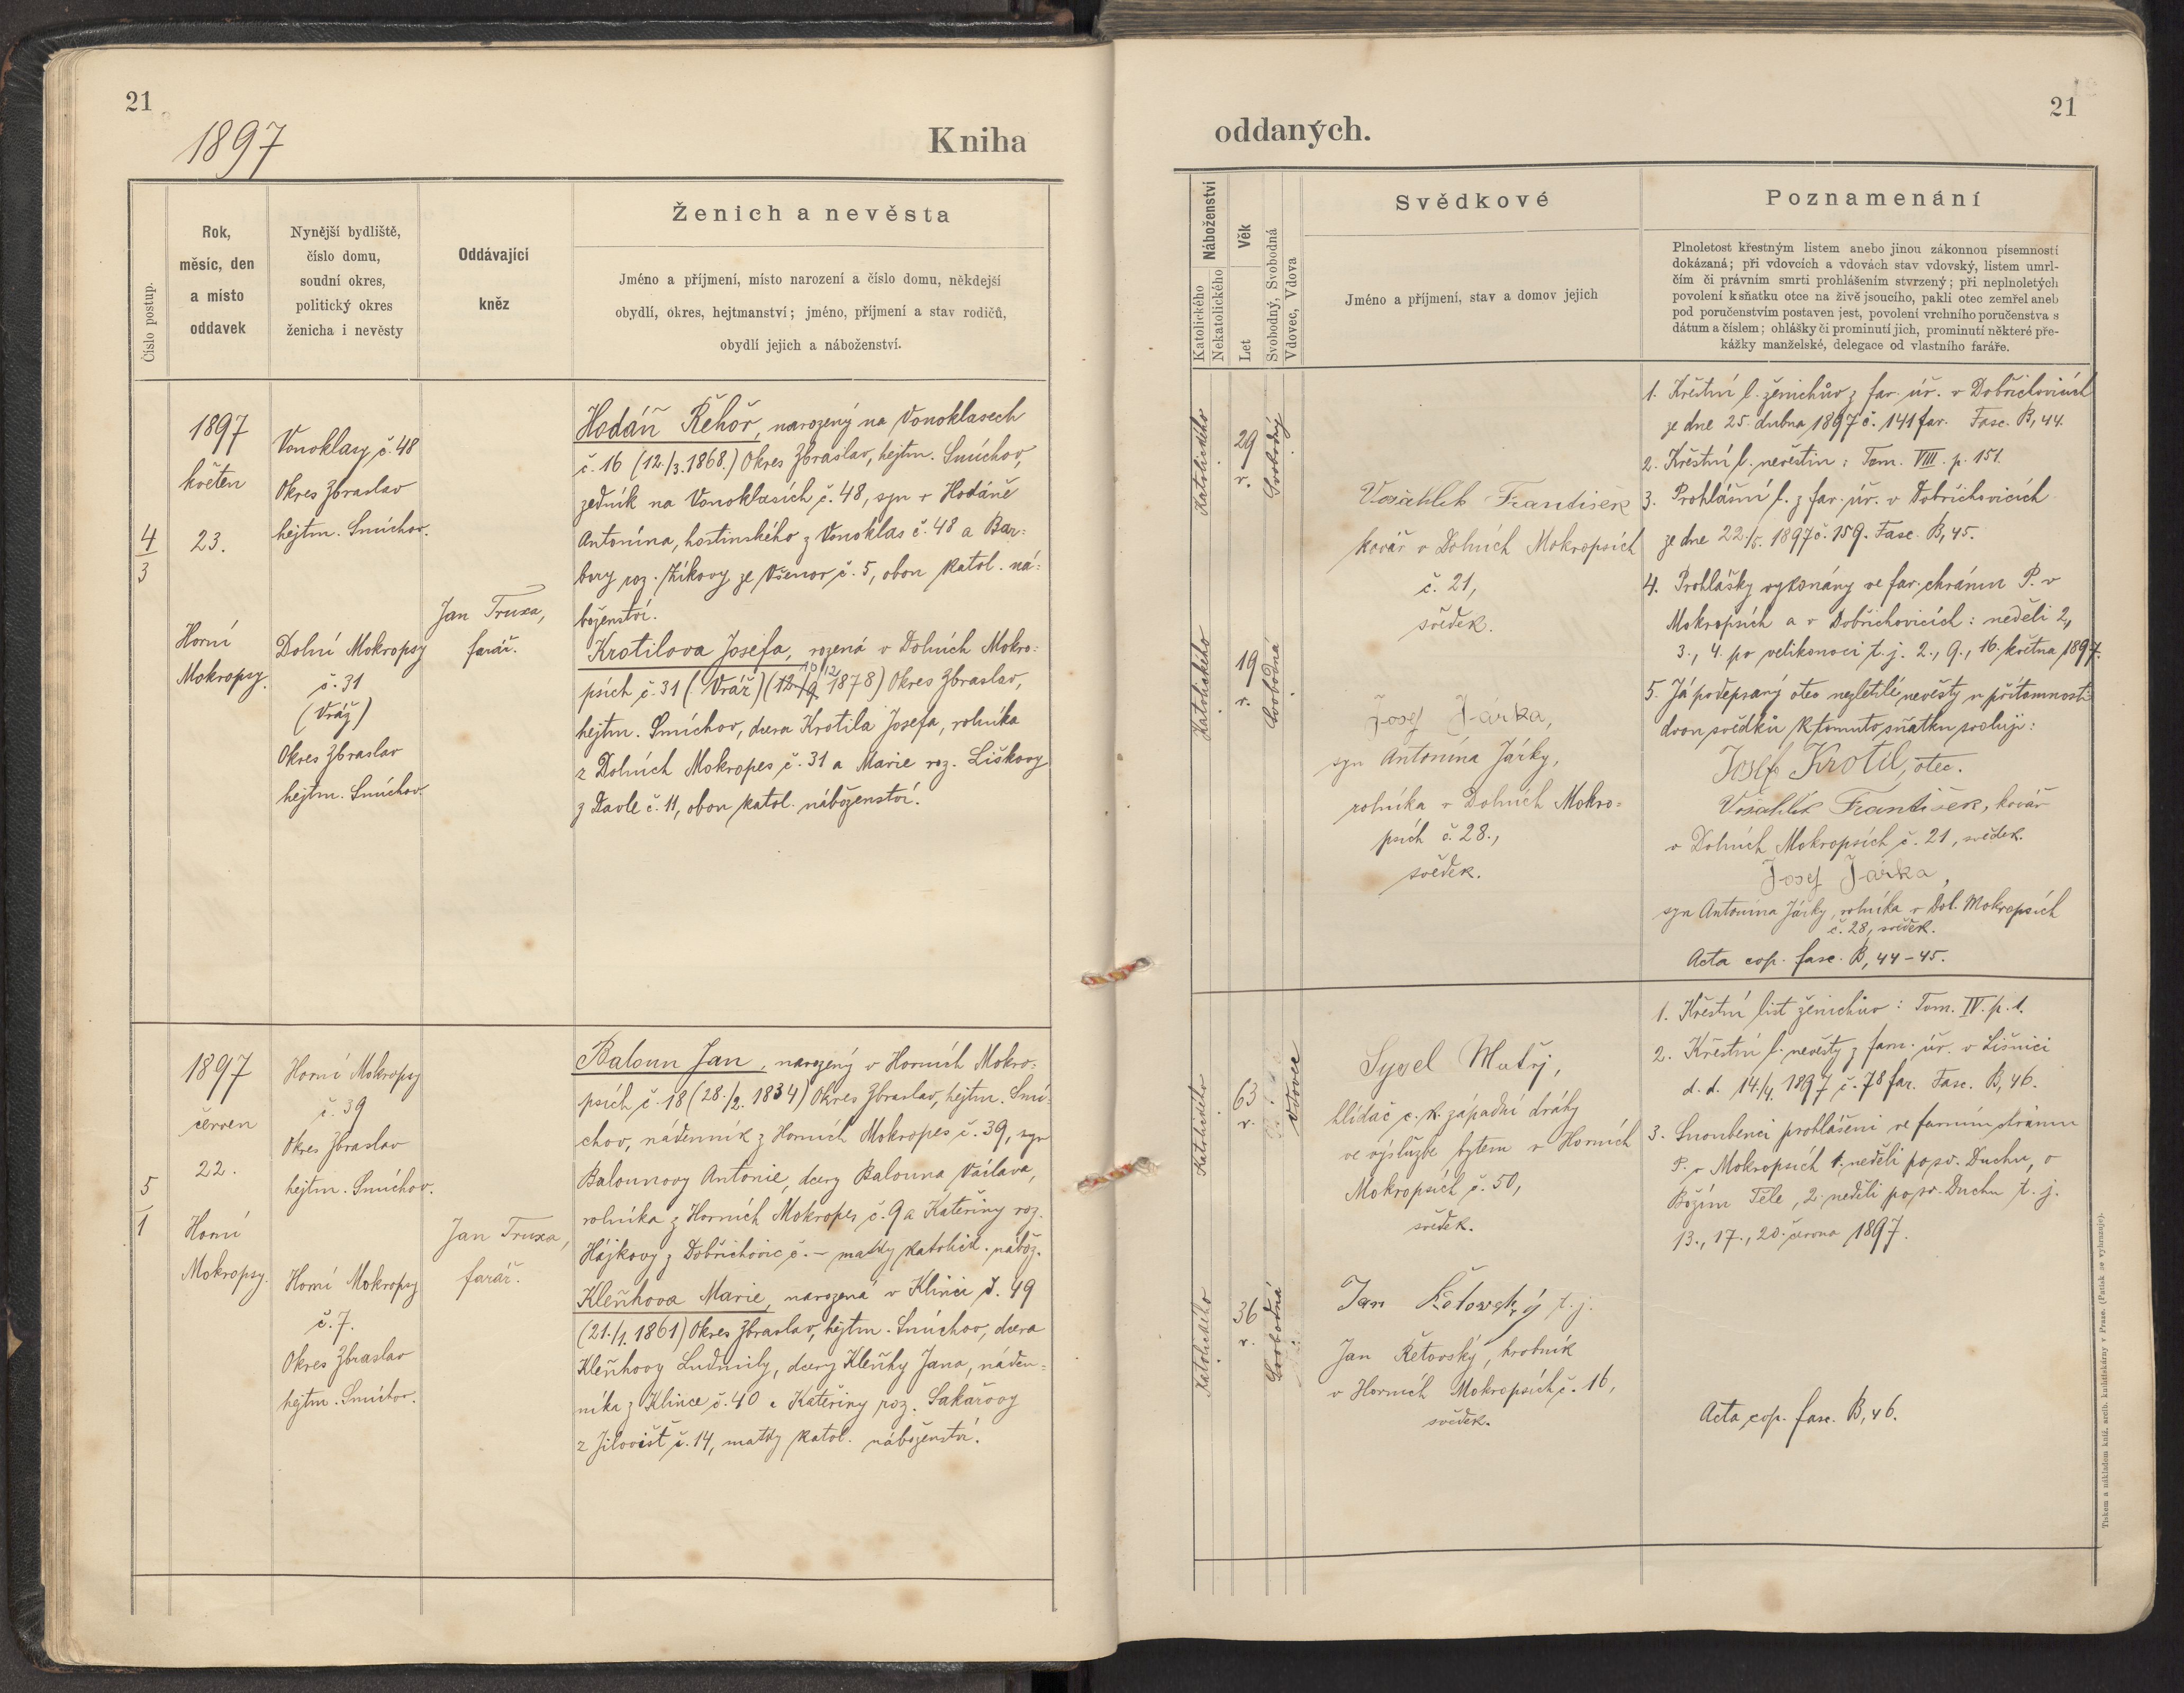 21
1897
Kniha
Číslo postup.
Rok,
měsíc, den
a místo
oddavek
Nynější bydliště,
číslo domu,
soudní okres,
politický okres
ženicha i nevěsty
Oddávající
kněz
Ženich a nevěsta
Jméno a příjmení, místo narození a číslo domu, někdejší
obydlí, okres, hejtmanství; jméno, příjmení a stav rodičů,
obydlí jejich a náboženství.
4
3
1897
květen
23.
Horní
Mokropsy.
Vonoklasy č. 48
Okres Zbraslav
hejtm. Smíchov.
Dolní Mokropsy
č. 31
(Vráž)
Okres Zbraslav
hejtm. Smíchov.
Jan Truxa,
farář.
Hodáň Řehoř, narozený na Vonoklasech
č. 16 (12./3. 1868.) Okres Zbraslav, hejtm. Smíchov,
zedník na Vonoklasích č. 48, syn + Hodáně
Antonína, hostinského z Vonoklas č. 48 a Bar-
bory roz. ze Všenor č. 5, obou katol. ná-
boženství.
Krotilova Josefa, rozená v Dolních Mokro-
psích č. 31 (Vráž) (12./9. 10/12 1878) Okres Zbraslav,
hejtm. Smíchov, dcera Krotila Josefa, rolníka
z Dolních Mokropes č. 31 a Marie roz. Liškovy
z Davle č. 11, obou katol. náboženství.
5
1
1897
červen
22.
Horní
Mokropsy.
Horní Mokropsy
č. 39
Okres Zbraslav
hejtm. Smíchov.
Horní Mokropsy
č. 7.
Okres Zbraslav
hejtm. Smíchov.
Jan Truxa,
farář.
Baloun Jan, narozený v Horních Mokro-
psích č. 18 (28./2. 1834) Okres Zbraslav, hejtm. Smí-
chov, nádenník z Horních Mokropes č. 39, syn
Balounovy Antonie, dcery Balouna Václava,
rolníka z Horních Mokropes č. 9 a Kateřiny roz.
Hájkovy z Dobřichovic č. – matky katolick. nábož.
Kleňhova Marie, narozená v Klínci č. 49
(21./1. 1861) Okres Zbraslav, hejtm. Smíchov, dcera
Kleňhovy Ludmily, dcery Kleňhy Jana, náden-
níka z Klínce č. 40 a Kateřiny roz. Sakařovy
z Jílovišť č. 14, matky katol. náboženství.
21
oddaných.
Náboženství
Katolického
Nekatolického
Věk
Let
Svobodný, Svobodná
Vdovec, Vdova
Svědkové
Jméno a příjmení, stav a domov jejich
Poznamenání
Plnoletost křestným listem anebo jinou zákonnou písemností
dokázaná; při vdovcích a vdovách stav vdovský, listem umrl-
čím či právním smrti prohlášením stvrzený; při neplnoletých
povolení k sňatku otce na živě jsoucího, pakli otec zemřel aneb
pod poručenstvím postaven jest, povolení vrchního poručenstva s
dátum a číslem; ohlášky či prominutí jich, prominutí některé pře-
kážky manželské, delegace od vlastního faráře.
Katolického
29
r.
Svobodný
Katolického
19
r.
Svobodná
Vosáhlík František
kovář v Dolních Mokropsích
č. 21,
svědek.
Josef Járka,
syn Antonína Járky,
rolníka v Dolních Mokro-
psích č. 28.,
svědek.
1. Křestní l. ženichův z far. úř. v Dobřichovicích
ze dne 25. dubna 1897 č. 141 far. Fasc. B, 44.
2. Křestní l. nevěstin: Tom. VIII. p. 151.
3. Prohlášní l. z far. úř. v Dobřichovicích
ze dne 22./5. 1897 č. 159. Fasc. B, 45.
4. Prohlášky vykonány ve far. chrámu P. v
Mokropsích a v Dobřichovicích: neděli 2,
3., 4. po velikonoci t. j. 2., 9., 16. května 1897.
5. Já podepsaný otec nezletilé nevěsty u přítomnosti
dvou svědků k tomuto sňatku svoluji:
Josef Krotil, otec.
Vosáhlík František, kovář
v Dolních Mokropsích č. 21, svědek.
Josef Járka,
syn Antonína Járky, rolníka v Dol. Mokropsích
č. 28, svědek.
Acta cop. fasc. B, 44–45.
Katolického
63
r.
Vdovec
Katolického
36
r.
Svobodná
Matěj,
hlídač c. k. západní dráhy
ve výslužbě bytem v Horních
Mokropsích č. 50,
svědek.
Jan Řetovský t. j.
Jan Řetovský, hrobník
v Horních Mokropsích č. 16,
svědek.
1. Křestní list ženichův: Tom. IV. p. 1.
2. Křestní l. nevěsty z farn. úř. v Líšnici
d. d. 14./4. 1897 č. 78 far. Fasc. B, 46.
3. Snoubenci prohlášeni ve farním chrámu
P. v Mokropsích 1. neděli po sv. Duchu, o
Božím Těle, 2. neděli po sv. Duchu t. j.
13., 17., 20. června 1897.
Acta cop. fasc. B, 46.
Tiskem a nákladem kníž. arcib. knihtiskárny v Praze. (Patisk se vyhrazuje).